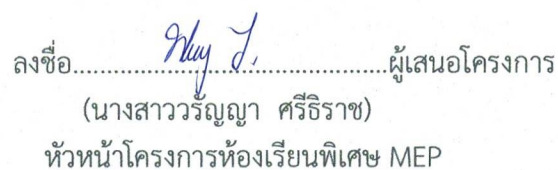 ลงชื่อ....................................................ผู้เสนอโครงการ
(นางสาววรัญญา ศรีธิราช)
หัวหน้าโครงการห้องเรียนพิเศษ MEP